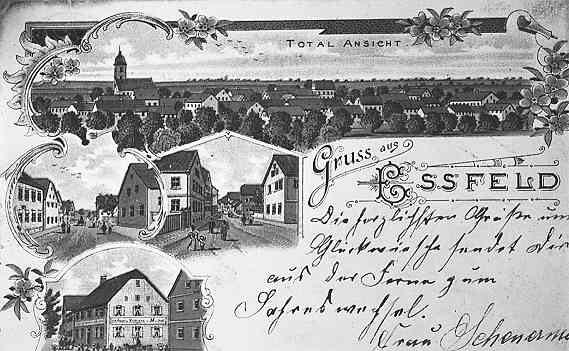 TOTAL ANSICHT
Gruss aus
ESSFELD
Die herzlichsten Grüße und
Glückwünsche sendet Dir
aus der Ferne zum
Jahreswechsel.
Frau Scheuerm